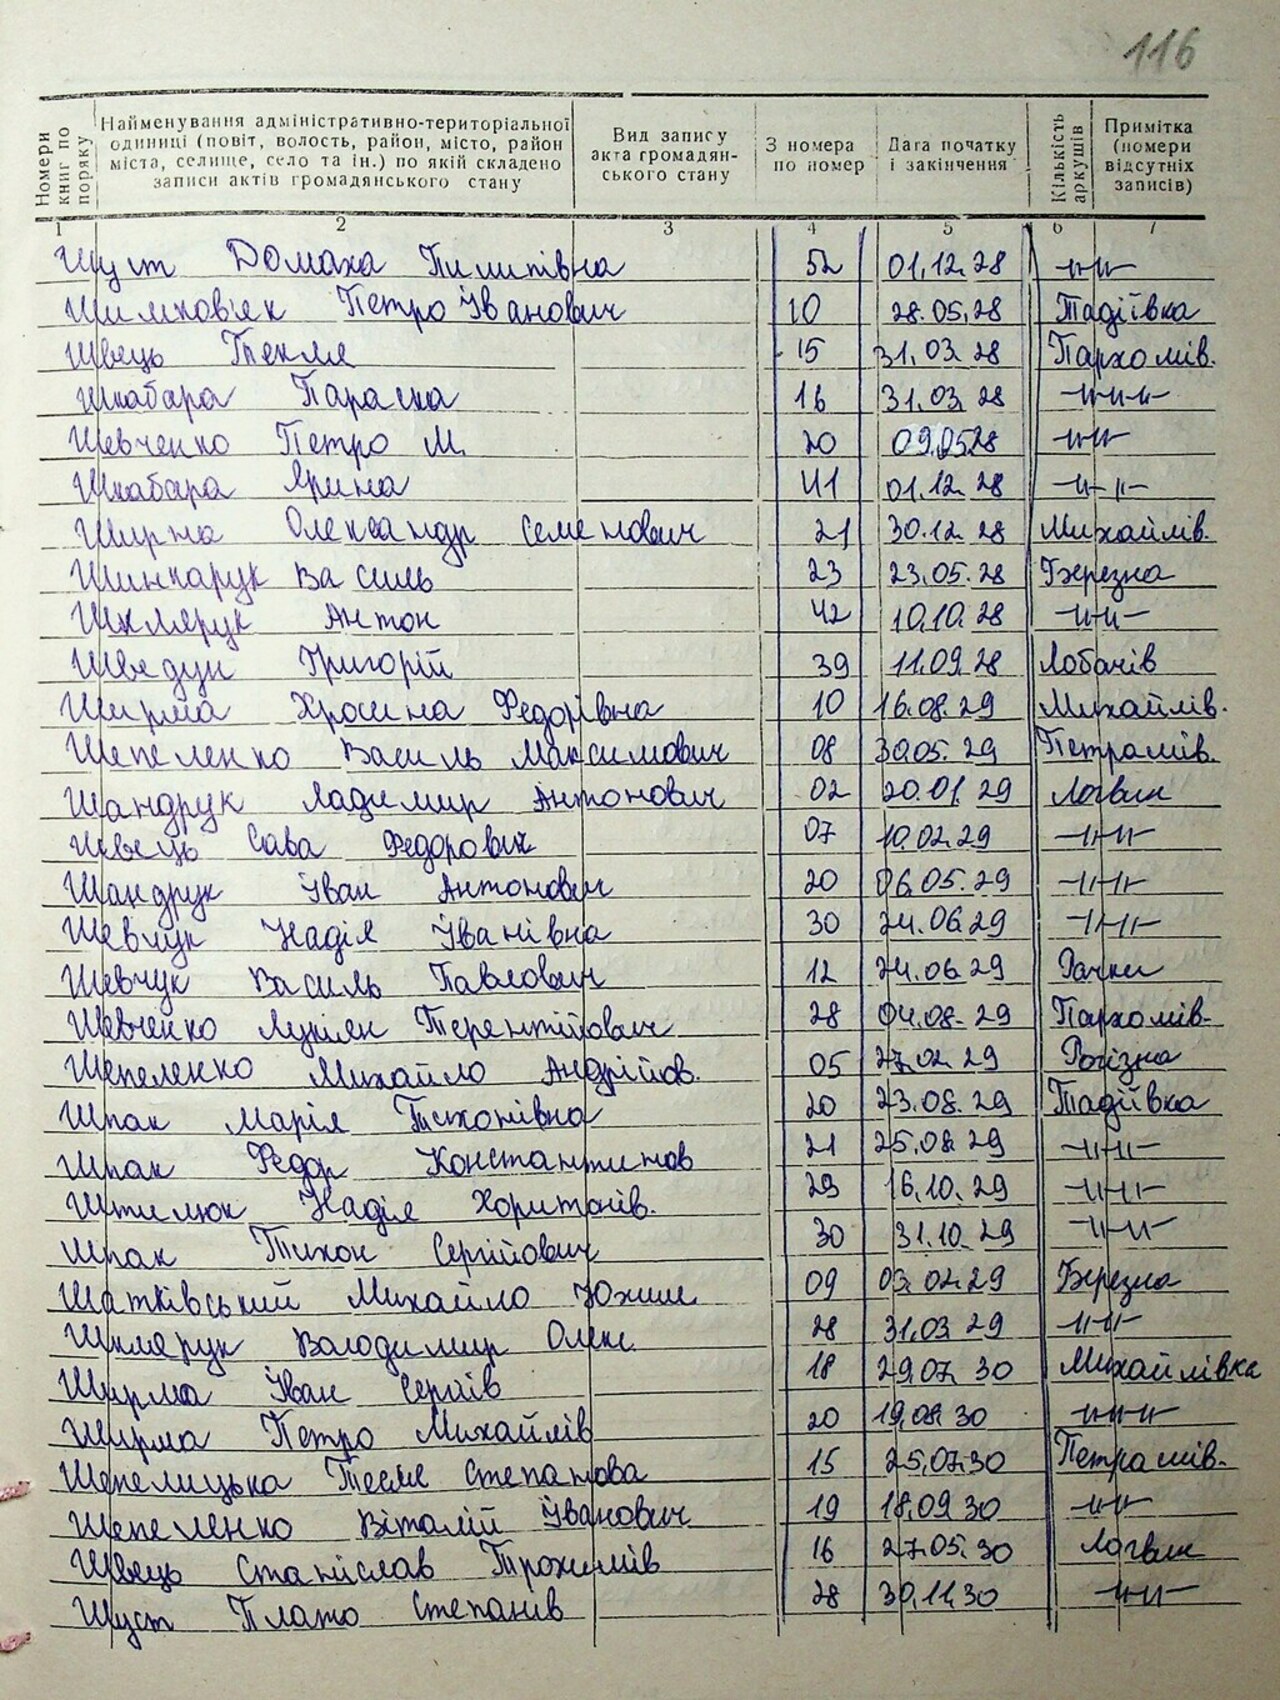 116
Номери книг по поряку
Найменування адміністративно-територіальної одиниці (повіт, волость, район, місто, район міста, селище, село та ін.) по якій складено записи актів громадянського стану
Вид запису акта громадян-ського стану
З номера по номер
Дата початку і закінчення
Кількість аркушів
Примітка (номери відсутніх записів)
1 2 3 4 5 6 7
Шуст Домаха Пилипівна 52 01.12.28 -//-//-
Шимков'як Петро Іванович 10 28.05.28 Тадіївка
Швець Текля 15 31.03.28 Пархомів.
Шкабара Параска 16 31.03.28 -//-//-
Шевченко Петро М. 20 09.05.28 -//-//-
Шкабара Ярина 41 01.12.28 -//-//-
Ширма Олександр Семенович 21 30.12.28 Михайлів.
Шинкарук Василь 23 23.05.28 Березна
Шклярук Антон 42 10.10.28 -//-//-
Шведун Григорій 39 11.09.28 Лобачів
Ширма Хросина Федорівна 10 16.08.29 Михайлів.
Шепеленко Василь Максимович 08 30.05.29 Петрашів.
Шандрук Ладимир Антонович 02 20.01.29 Логвин
Швець Сава Федорович 07 10.02.29 -//-//-
Шандрук Іван Антонович 20 06.05.29 -//-//-
Шевчук Надія Іванівна 30 24.06.29 -//-//-
Шевчук Василь Павлович 12 24.06.29 Рачки
Шевченко Лукіян Терентійович 28 04.08.29 Пархомів.
Шепеленко Михайло Андрійов. 05 27.02.29 Рогізна
Шпак Марія Тихонівна 20 23.08.29 Тадіївка
Шпак Федір Константинов 21 25.08.29 -//-//-
Штилюк Надія Харитонів. 29 16.10.29 -//-//-
Шпак Тихон Сергійович 30 31.10.29 -//-//-
Шатківський Михайло Юхим. 09 03.02.29 Березна
Шклярук Володимир Олекс. 28 31.03.29 -//-//-
Ширма Іван Сергіїв 18 29.07.30 Михайлівка
Ширма Петро Михайлів 20 19.08.30 -//-//-
Шепелицька Тесля Степанова 15 25.07.30 Петрашів.
Шепеленко Віталій Іванович 19 18.09.30 -//-//-
Швець Станіслав Трохимів 16 27.05.30 Логвин
Шуст Плато Степанів 28 30.11.30 -//-//-